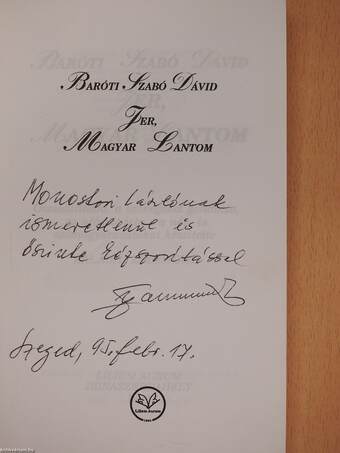 BARÓTI SZABÓ DÁVID
JER,
MAGYAR LANTOM
Monostori Lászlónak
ismeretlenül és
őszinte kézszorítással
Szeged, 95. febr. 17.
Lilium Aurum